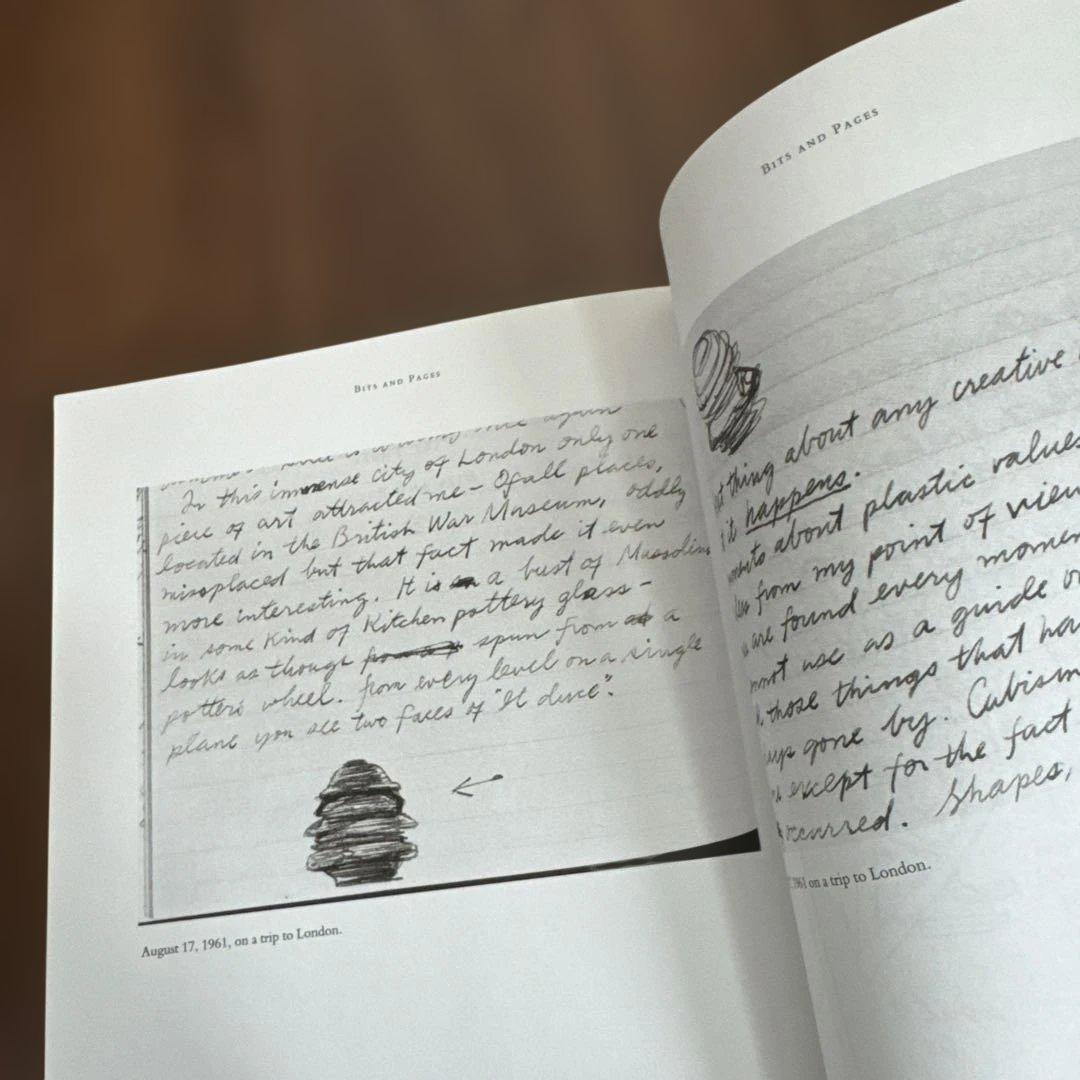 BITS AND PAGES
once again
In this immense city of London only one
piece of art attracted me – Of all places,
located in the British War Museum, oddly
missplaced but that fact made it even
more interesting. It is a bust of Mussolini
in some kind of Kitchen pottery glass –
looks as though spun from a
potters wheel. from every level on a single
plane you see two faces of "Il duce".
August 17, 1961, on a trip to London.
BITS AND PAGES
thing about any creative
it happens.
about plastic values
from my point of view
are found every
use as a guide
those things that
gone by. Cubism
except for the fact
occurred. Shapes,
1961 on a trip to London.